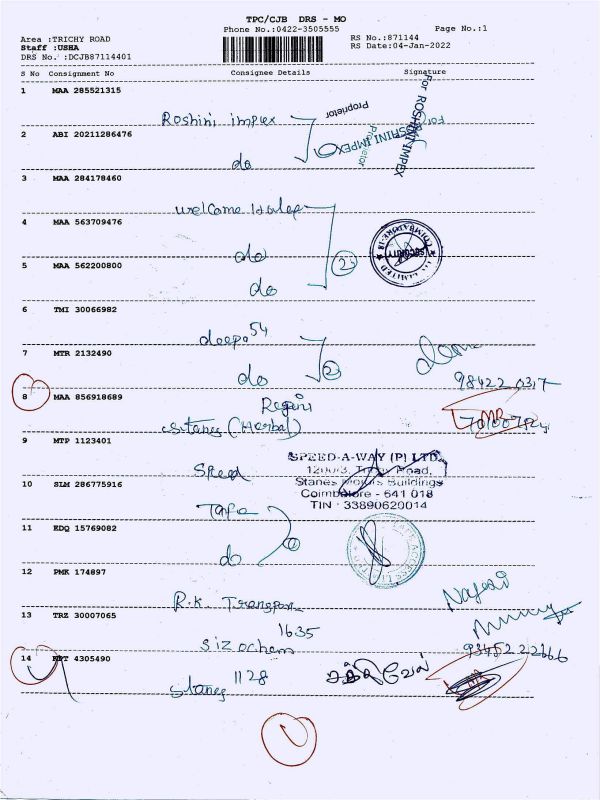 TPC/CJB DRS - MO
Phone No.:0422-3505555 Page No.:1
Area :TRICHY ROAD RS No.:871144
Staff :USHA RS Date:04-Jan-2022
DRS No. :DCJB87114401
S No Consignment No Consignee Details Signature
1 MAA 285521315
Roshini impex
Proprietor
For ROSHINI IMPEX
2 ABI 20211286476
do
Proprietor
3 MAA 284178460
welcome
4 MAA 563709476
do
COIMBATORE-18
SECURITY
5 MAA 562200800
do
2
6 TMI 30066982
deepa 54
7 MTR 2132490
do
2
98422 0317
8 MAA 856918689
Stanes (Herbal)
9 MTP 1123401
Speed
SPEED-A-WAY (P) LTD.
1200/3, Trichy Road,
Stanes Motors Buildings
Coimbatore - 641 018
TIN : 33890620014
10 SLM 286775916
Tape
11 EDQ 15769082
do
12 PMK 174897
R.K. Transport
13 TRZ 30007065
Sizochem 1635
93452 22166
14 4305490
Stanes 1128 சக்திவேல்